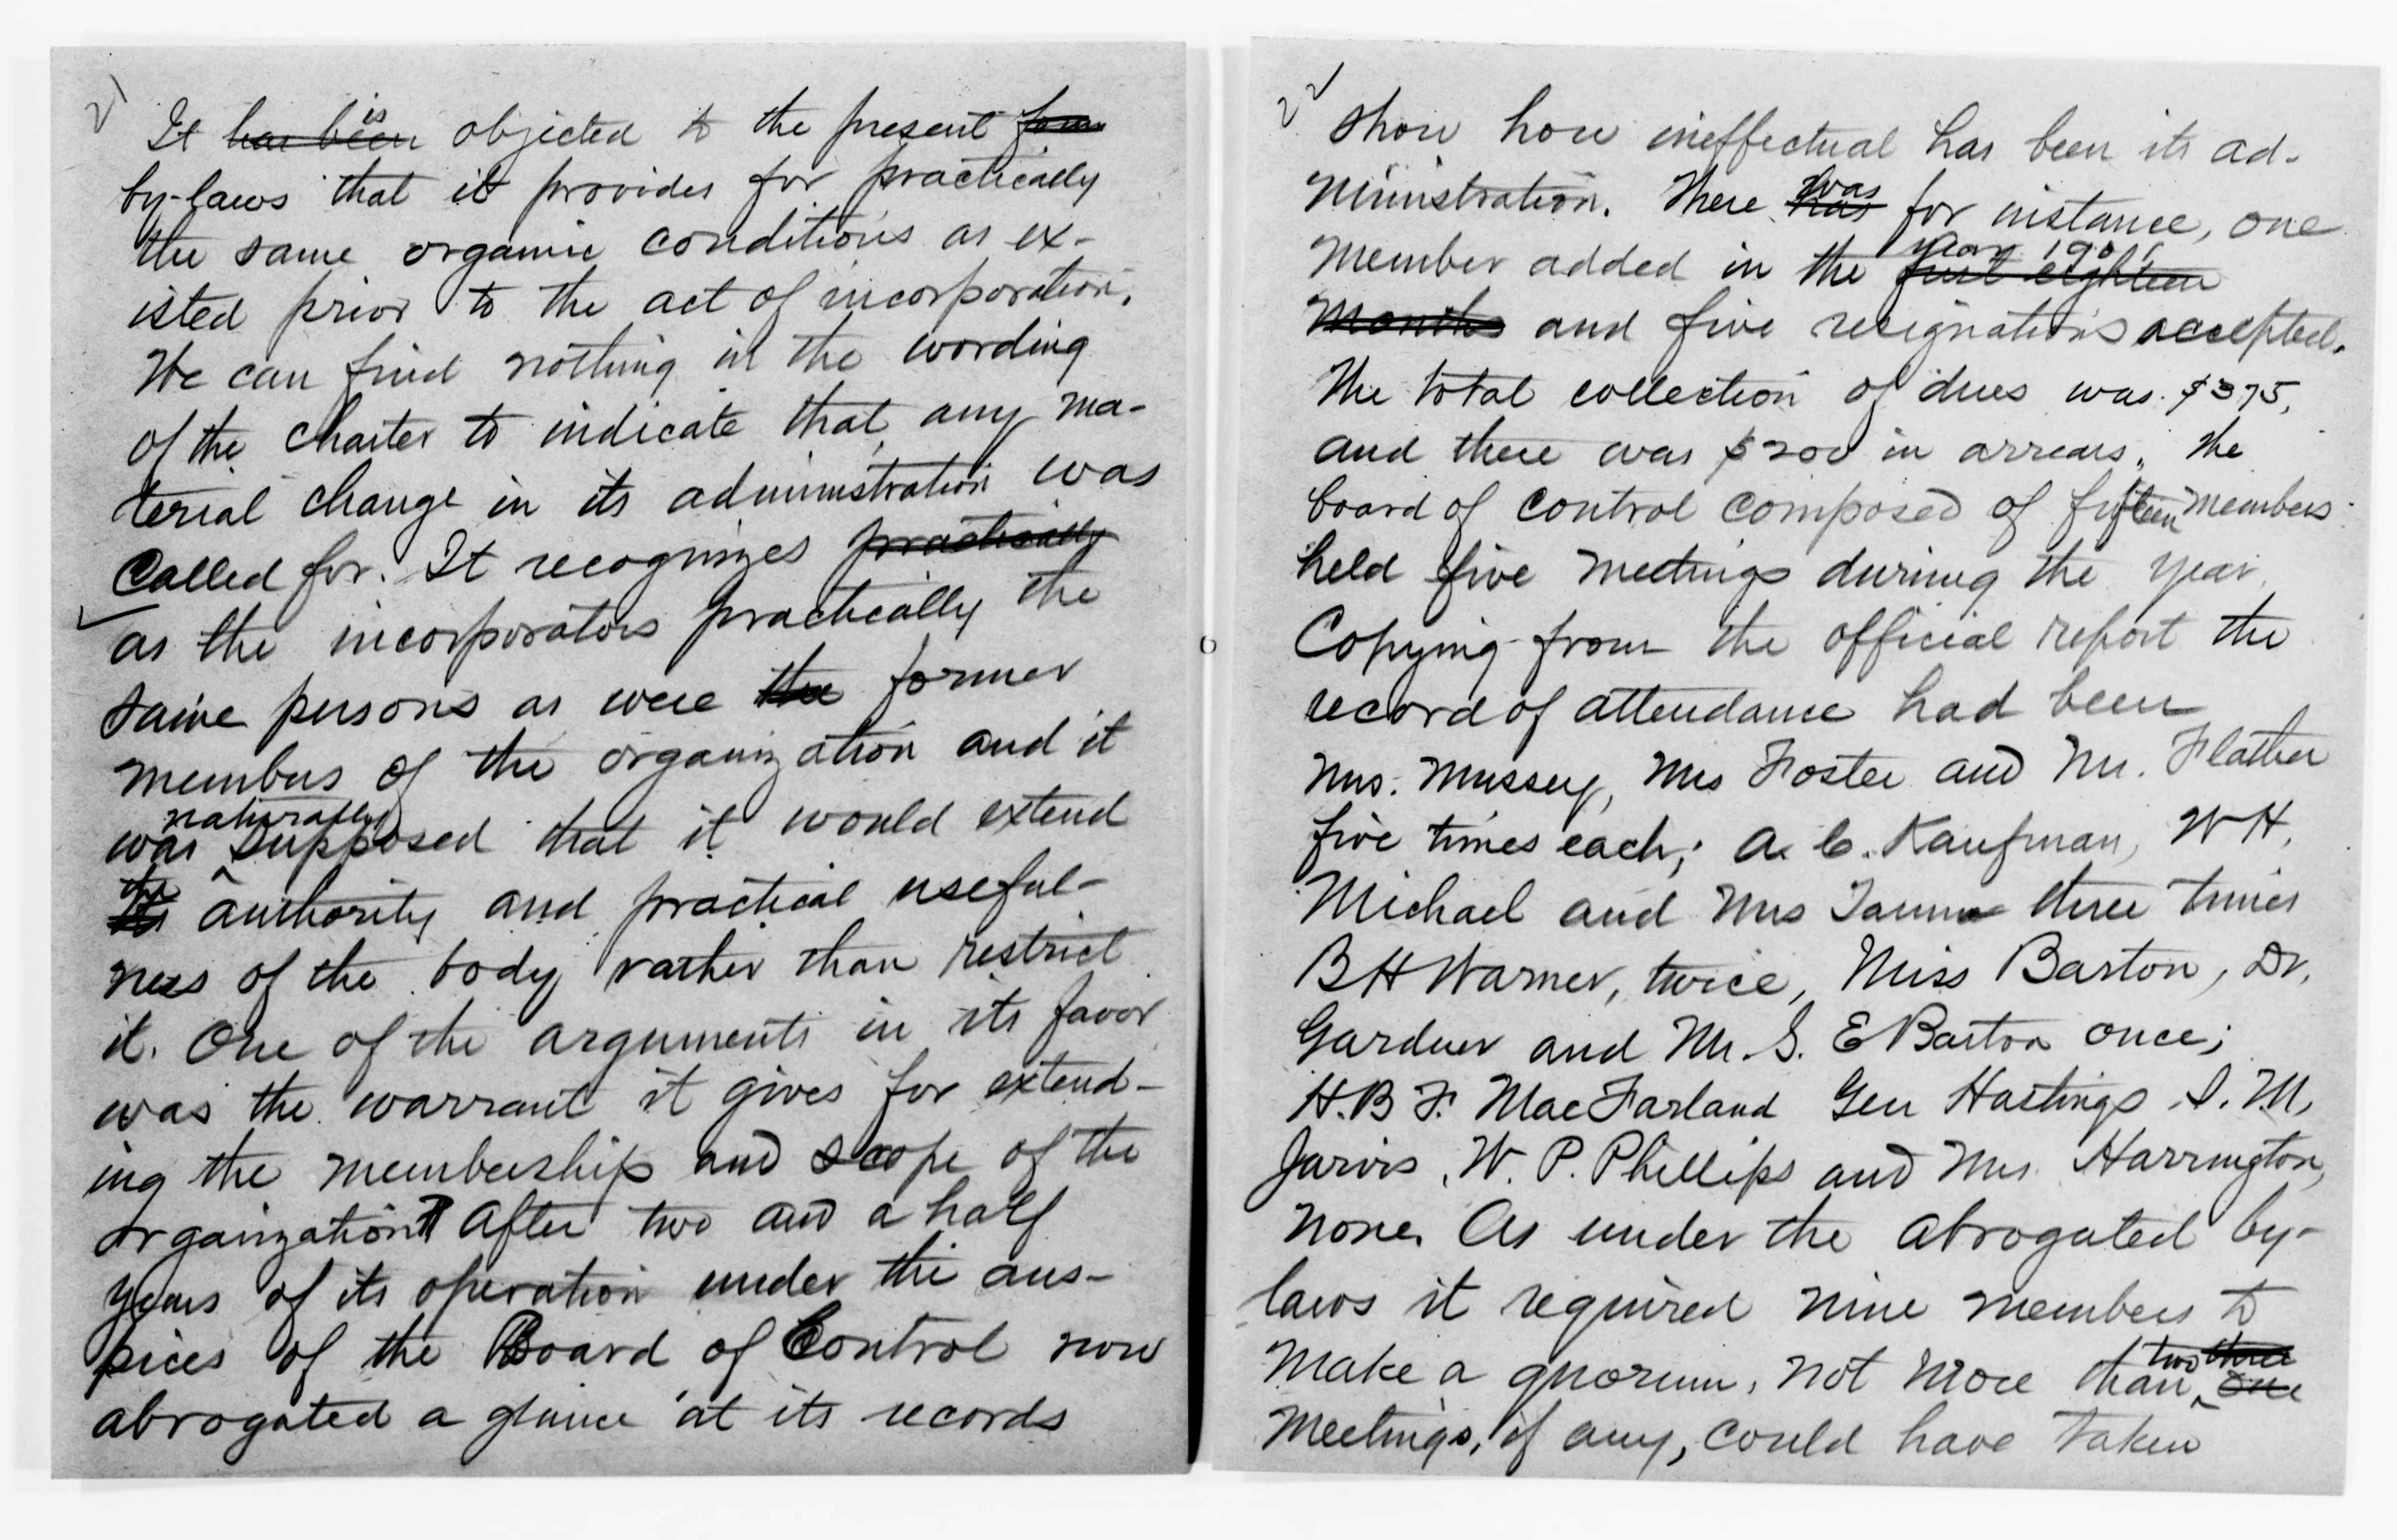 21
It ~~has been~~ is objected to the present ~~form~~
by-laws that it provides for practically
the same organic conditions as ex-
isted prior to the act of incorporation.
We can find nothing in the wording
of the charter to indicate that any ma-
terial change in its administration was
called for. It recognizes ~~practically~~
as the incorporators practically the
same persons as were ~~the~~ former
members of the organization and it
was naturally supposed that it would extend
~~its~~ the authority and practical useful-
ness of the body rather than restrict
it. One of the arguments in its favor
was the warrant it gives for extend-
ing the membership and scope of the
organization ¶ After two and a half
years of its operation under the aus-
pices of the Board of Control now
abrogated a glance at its records
22
show how ineffectual has been its ad-
ministration. There ~~has~~ was for instance, one
member added in the ~~first eighteen~~ year 1901,
~~months~~ and five resignations accepted.
The total collection of dues was $375,
and there was $200 in arrears. The
board of control composed of fifteen members
held five meetings during the year.
Copying from the official report the
record of attendance had been
Mrs. Mussey, Mrs Foster and Mr. Flather
five times each; A. C. Kaufman, W H.
Michael and Mrs Tanner three times
B H Warner, twice, Miss Barton, Dr.
Gardner and Mr. S. E Barton once;
H. B F. MacFarland Gen Hastings S. M.
Jarvis, W. P. Phillips and Mrs. Harrington,
none. As under the abrogated by-
laws it required nine members to
make a quorum, not more than ~~one~~ two ~~three~~
meetings, if any, could have taken